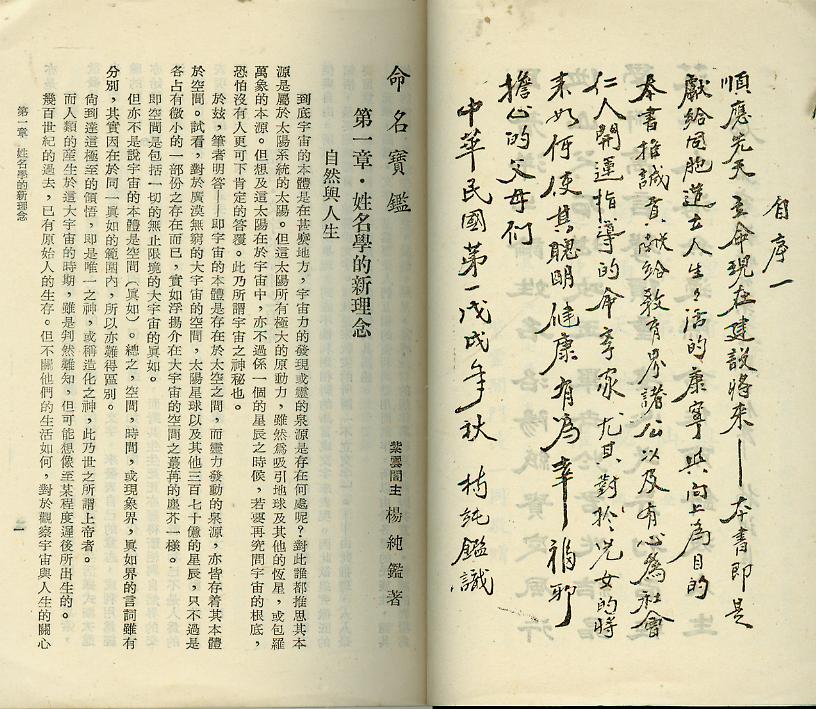 自序一
順應先天立命現在建設將來——本書即是
獻給同胞造立人生々活的康寧與向上為目的
本書推誠貢献給教育界諸公以及有心為社會
仁人開運指導的命家尤其對於兒女的將
来如何使其聰明健康有為幸福耶
擔心的父母们
中華民國第一戊戌年秋 楊純鑑識
命名寶鑑
紫雲閣主 楊純鑑著
第一章・姓名學的新理念
自然與人生
到底宇宙的本體是在甚麼地方,宇宙力的發現或靈的泉源是存在何處呢?對此誰都推思其本
源是屬於太陽系統的太陽。但這太陽所有極大的原動力,雖然爲吸引地球及其他的恆星,或包羅
萬象的本源。但想及這太陽在於宇宙中,亦不過係一個的星辰之時候,若要再究問宇宙的根底,
恐怕沒有人更可下肯定的答覆。此乃所謂宇宙之神秘也。
於玆,筆者明答——即宇宙的本體是存在於太空之間,而靈力發動的泉源,亦皆存着其本體
於空間。試看,對於廣漠無窮的大宇宙的空間,太陽星球以及其他三百七十億的星辰,只不過是
各占有微小的一部份之存在而已,實如浮揚介在大宇宙的空間之叢苒的塵芥一樣。
即空間是包括一切的無止限境的大宇宙的眞如。
但亦不是說宇宙的本體是空間(眞如)。總之,空間,時間,或現象界,眞如界的言詞雖有
分別,其實因在於同一眞如的範圍內,所以亦難得區別。
尙到達這極至的領悟,即是唯一之神,或稱造化之神,此乃世之所謂上帝者。
而人類的產生於這大宇宙的時期,雖是判然難知,但可能想像至某程度遲後所出生的。
幾百世紀的過去,已有原始人的生存。但不關他們的生活如何,對於觀察宇宙與人生的關心
第一章 姓名學的新理念
一